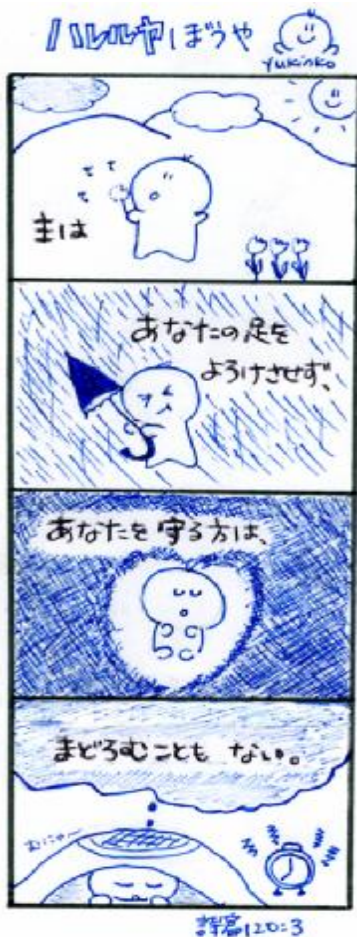 ハレルヤぼうや
yukinko
主は
あなたの足を
よろけさせず、
あなたを守る方は、
まどろむことも ない。
むにゃ〜
詩篇120:3